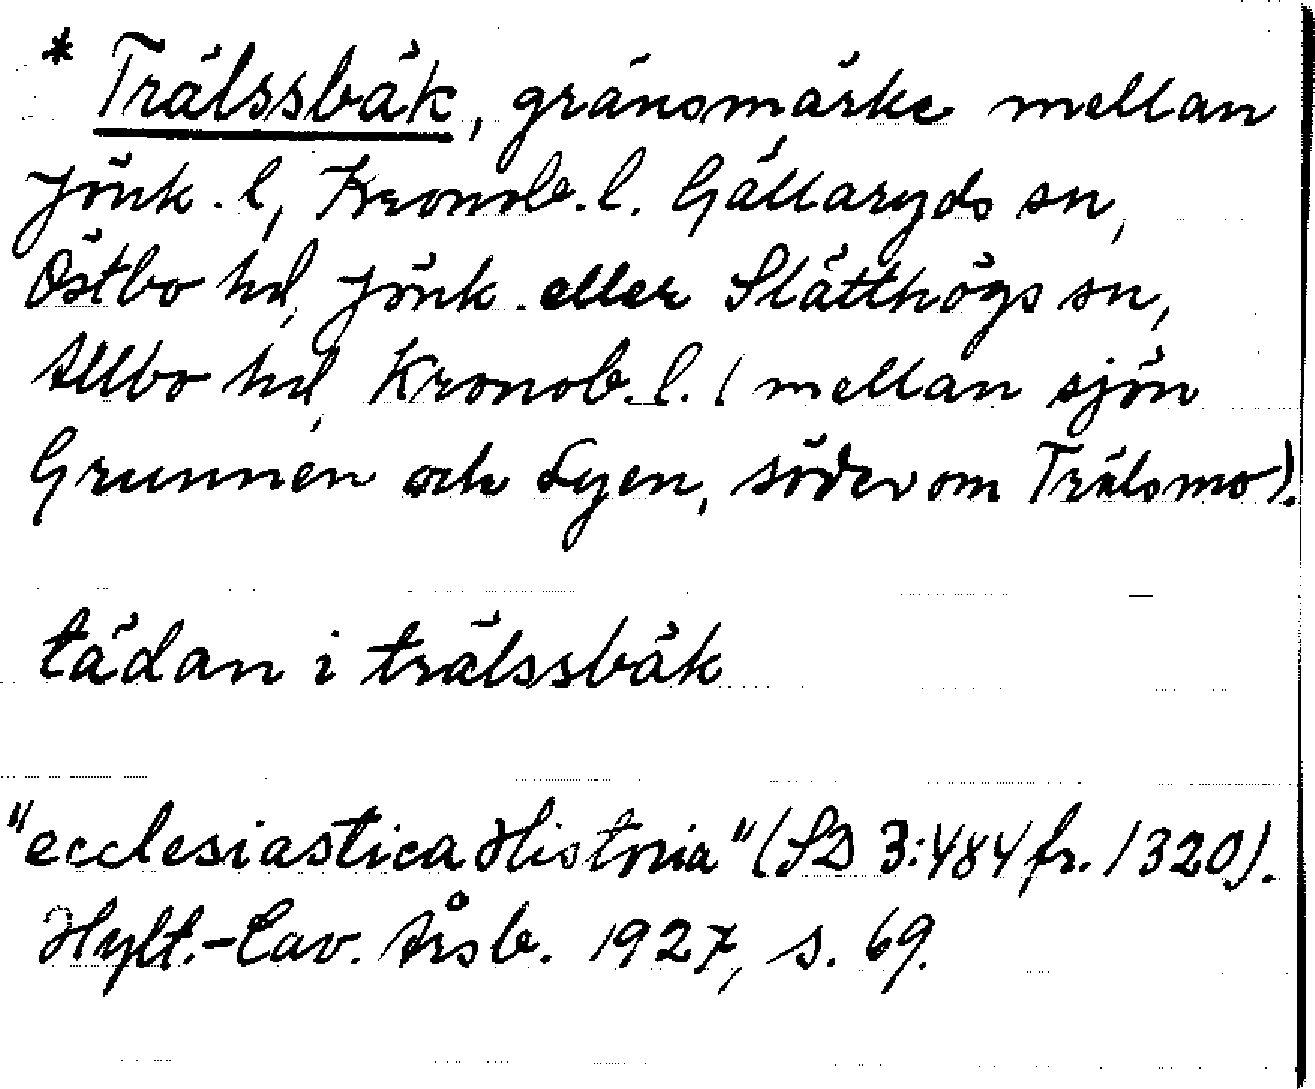 * Trälssbäk, gränsmärke mellan
Jönk. l, Kronob. l. Gällaryds sn,
Östbo hd, Jönk. eller Slätthögs sn,
Allbo hd, Kronob. l. (mellan sjön
Grunnen och Lyen, söder om Trälsmo).
tädan i trälssbäk
"ecclesiastica Historia" (SD 3:484 fr. 1320).
Hylt.-Cav. Årsb. 1927, s. 69.